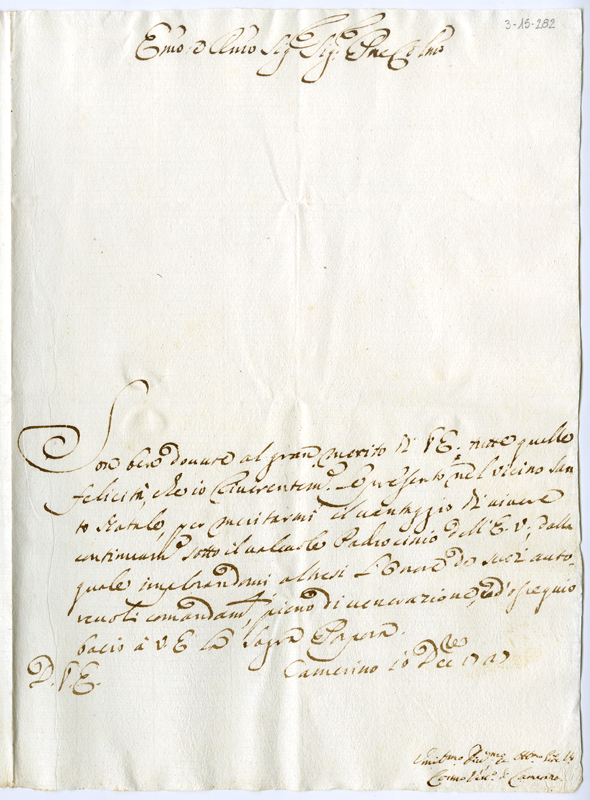 3-15-282
Emo e Rmo Sigr Sigr Pne Colmo
Son ben dovute al gran merito di V.E. tutte quelle
felicità, che io riverentemte Le presento nel vicino San
to Natale, per meritarmi il vantaggio di vivere
continuamte sotto il valevole Padrocinio dell'E.V., dalla
quale implorandomi altresì l'onore de suoi auto-
revoli comandamti, pieno di venerazione, ed ossequio
bacio à V.E. la Sagra Porpora.
Camerino 10 Dcē
D.V.E.
Camerino